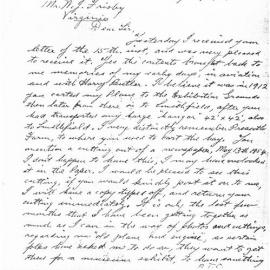 Mr. W. J. Frisby
Virginia
Dear Sir
Yesterday I received your
letter of the 15th inst, and was very pleased
to receive it. Yes the contents brought back to
me memories of my early days, in aviation
and with Harry Butler. I believe it was in 1912
was carting my Plane to the Exhibition Grounds
then later from there is to Smithfield, after you
had transported my large "hangar" 42' x 42', also
to Smithfield. I may distinctly remember
Farm, where you used to host the boy. You
mention a cutting out of a newspaper, May 13th 1954
I don't happen to have this, I may have overlooked
it in the Paper. I would be pleased to see this
cutting, if you would kindly post it on to me,
I will have a copy typed off and return your
cutting immediately. It is only the last few
months that I have been getting together as
much as I can in the way of photos and cuttings
regarding my old plane and engine, as certain
folks have asked me to do so, they want to get
these for a museum exhibit, to have something
P.T.O.